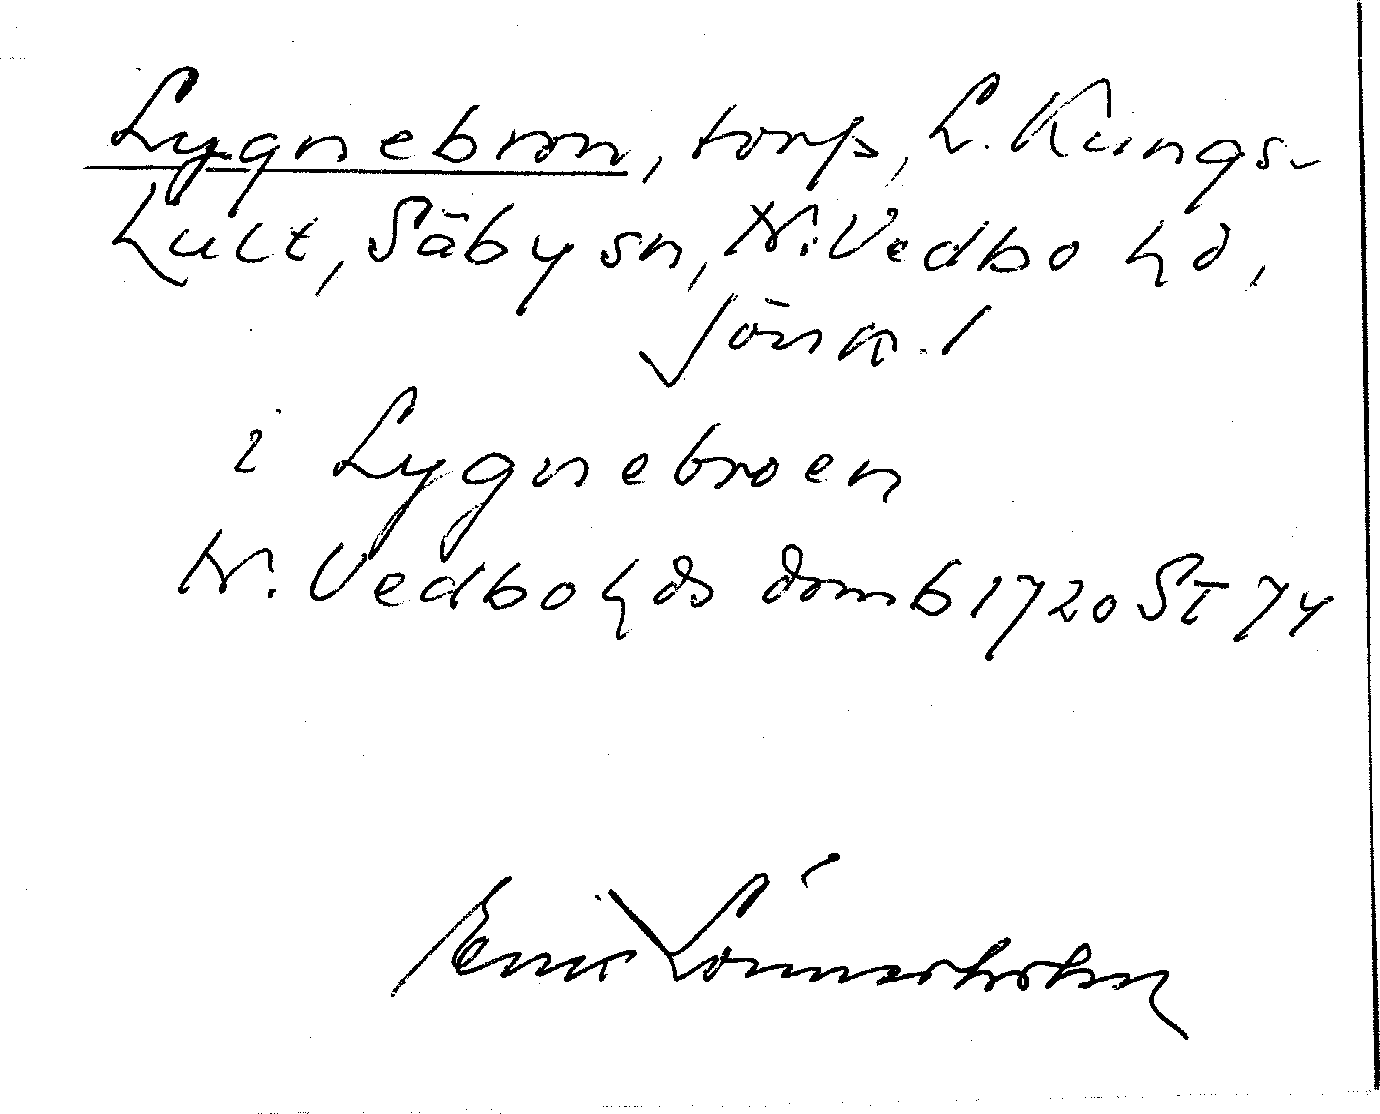 Lygnebron, torp, L. Kungs-
hult, Säby sn, N. Vedbo hd,
Jönk. l
i Lygnebroen
N. Vedbo hds domb 1720 ST 74
Erik Lönnerholm